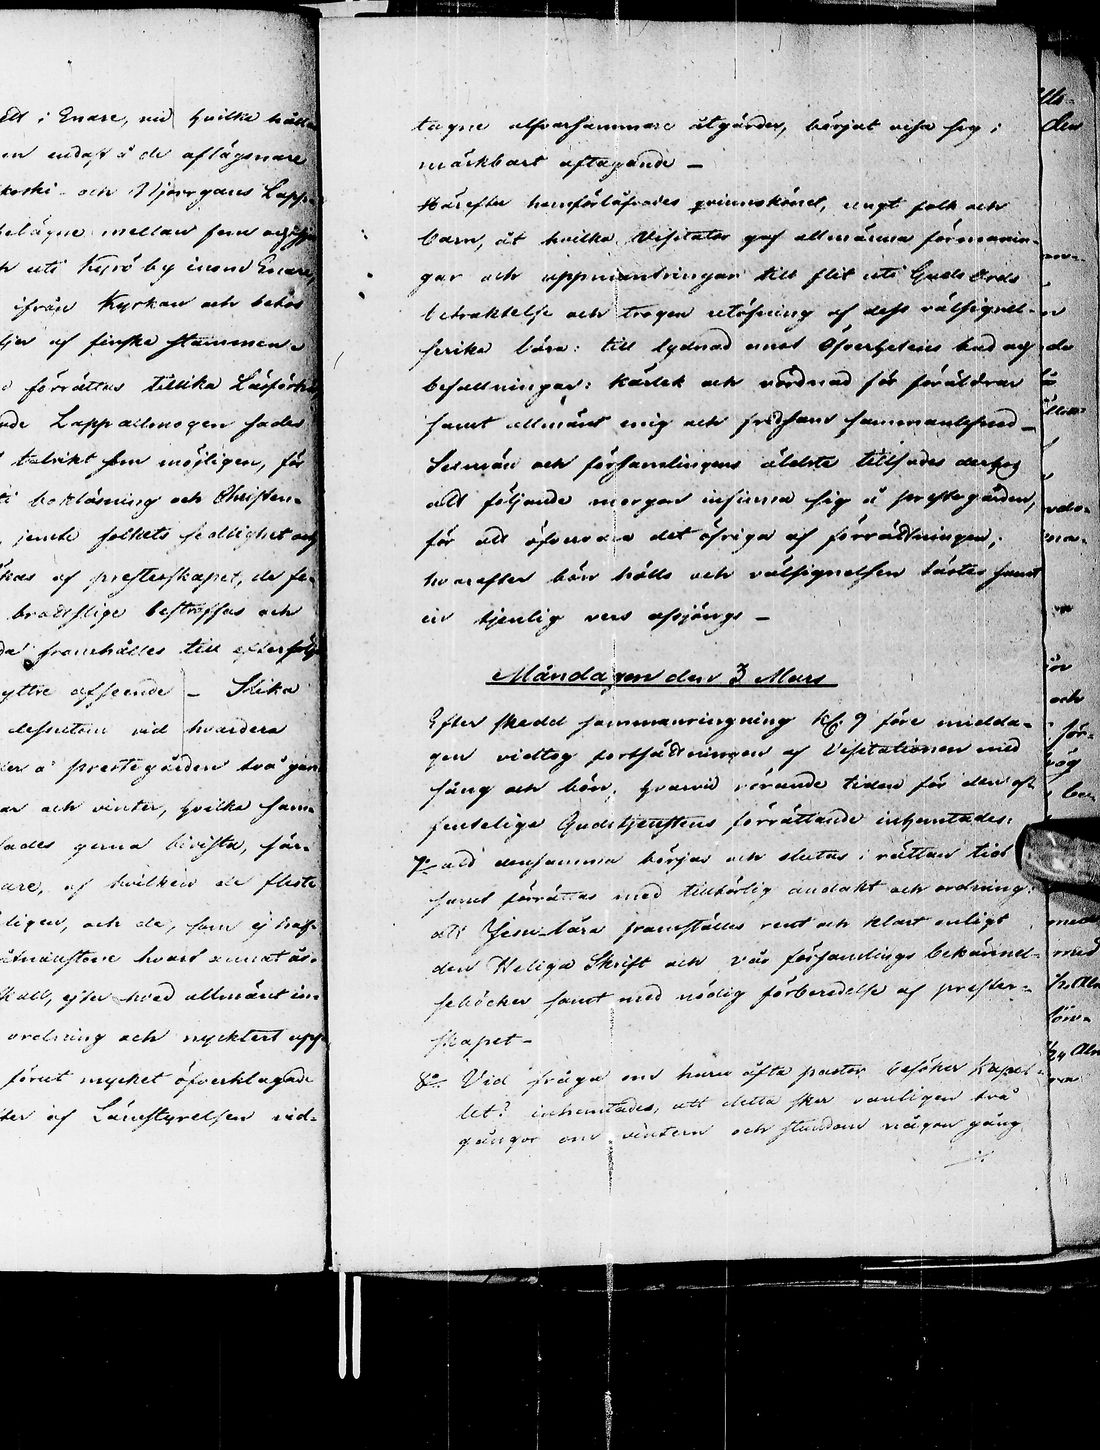 ell i Enare, vid hvilka hålle
en endast å de aflägsnare
koski- och Njorrgans Lapp-
belägne mellan fem och
h uti Kyrö by inom Enare,
ifrån Kyrkan och bebos
ljer af finske stammen.
förrättas tillika Läsförhör
nde Lappallmogen sades
talrikt som möjligen, för
ti bokläsning och Christen-
jemte folkets sedlighet och
kas af presterskapet, de fe-
brottslige bestraffas och
da framhålles till efterfölj
yttre afseende — Slika
dessutom vid hvardera
ler å prestegården två gån
ar och vinter, hvilka sam-
sades gerna bivista, för-
are, af hvilken de fleste
ligen, och de, som ej haf-
åtminstone hvart annat år.
skall, efter hvad allmänt in-
ordning och nycktert upp-
förut mycket öfverklagade
ter af Länestyrelsen vid-
tagne alfvarsammare åtgärder, börjat visa sig i
märkbart aftagande —
Härefter hemförlofvades qvinnskönet, ungt folk och
barn, åt hvilka Visitator gaf allmänna förmanin-
gar och uppmuntringar till flit uti Guds Ords
betraktelse och trogen utöfning af dess välsignel-
serika lära: till lydnad emot Öfverhetens bud och
befallningar: kärlek och vördnad för föräldrar
samt allmänt enig och fridsam sammanlefnad —
Sexmän och församlingens äldste tillsades derhos
att följande morgon infinna sig å prestegården,
för att öfvervara det öfriga af förrättningen;
hvarefter bön hölls och välsignelsen lästes samt
en tjenlig vers afsjöngs —
Måndagen den 3 Mars
Efter skedd sammanringning kl. 9 före midda-
gen vidtog fortsättningen af Visitationen med
sång och bön, hvarvid rörande tiden för den of-
fentelige Gudstjenstens förrättande inhemtades:
7o att densamma börjas och slutas i rättan tid
samt förrättas med tillbörlig andakt och ordning:
att Jesu lära framställes rent och klart enligt
den Heliga Skrift och vår församlings bekännel-
seböcker samt med nödig förberedelse af prester-
skapet —
8o Vid fråga om huru ofta pastor besöker Kapel-
let? inhemtades, att detta sker vanligen två
gånger om vintern och stundom någon gång